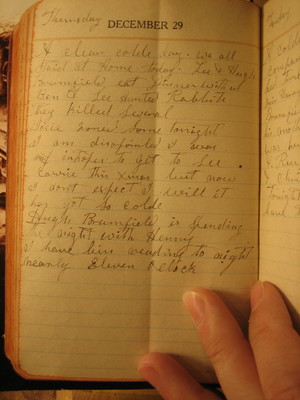 Thursday
DECEMBER 29
A clear colde day. we all
staid at Home today. Lee & Hugh
Brumfield eat dinner with us
Ben & Lee Hunted Rabbits
they Killed Several
Snow some tonight
I am disapointed I was
in hopes to get to See
Carrie this Xmas but now
I dont expect I will it
has got so colde
Hugh Brumfield is spending
the night with Henry
I have bin reading to night
nearly Eleven Oclock